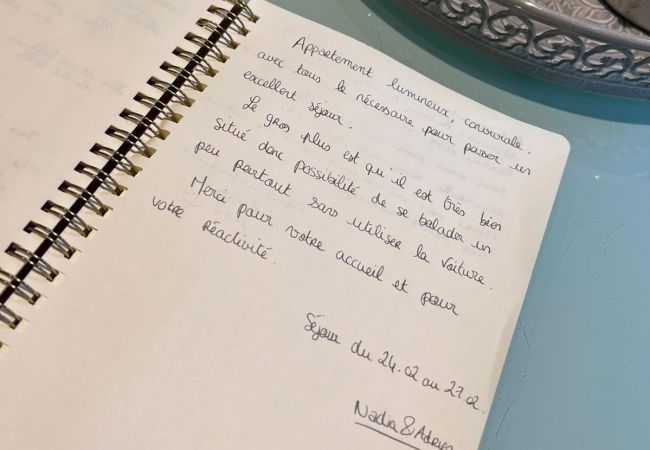 Appartement lumineux, conviviale,
avec tous le nécessaire pour passer un
excellent séjour.
Le gros plus est qu'il est très bien
situé donc possibilité de se balader un
peu partout sans utiliser la voiture.
Merci pour votre accueil et pour
votre réactivité.
Séjour du 24.02 au 27.02.
Nadia & Adrien